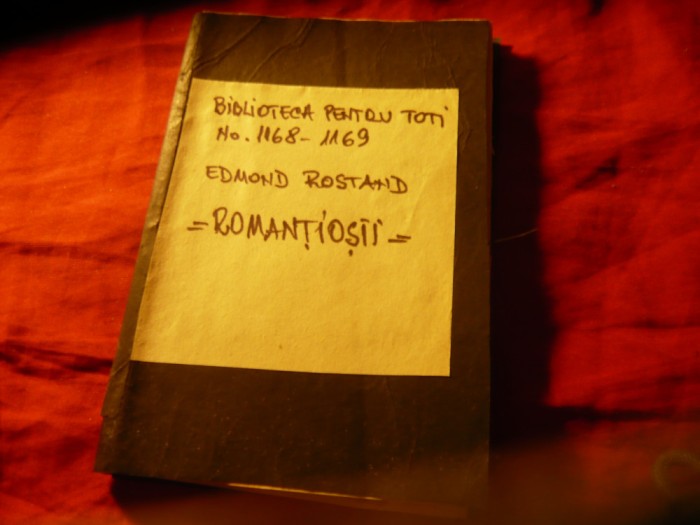 BIBLIOTECA PENTRU TOTI
No. 1168-1169
EDMOND ROSTAND
=ROMANȚIOȘII=